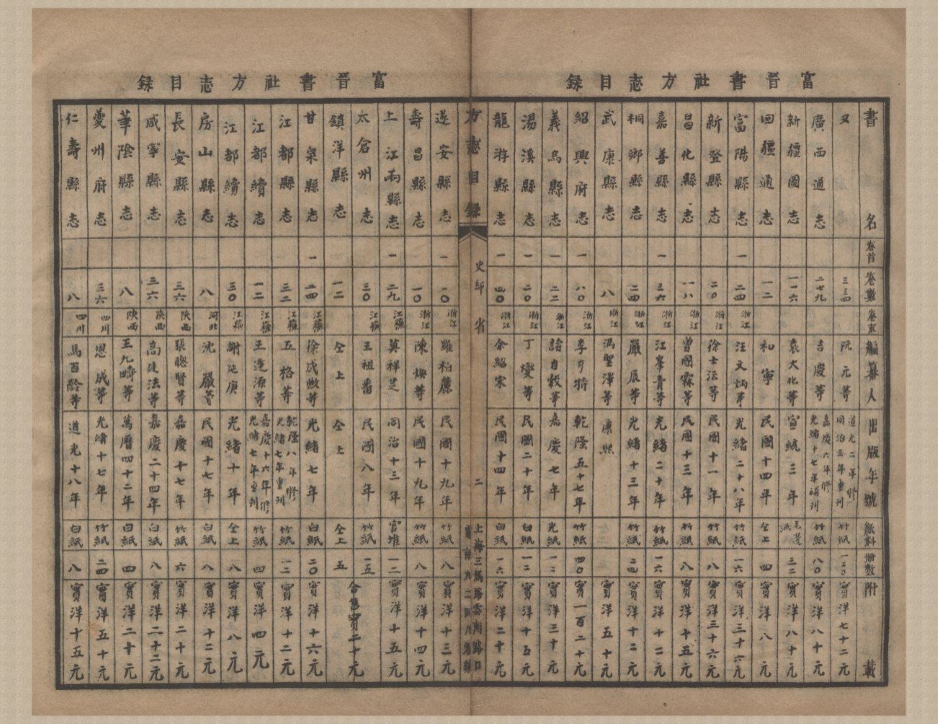 富晉書社方志目錄
書名 卷首 卷數 卷末 編纂人 出版年號 紙料 冊數 附載
又 三三四 阮元等 道光二年修同治三年重刊 竹紙 一二〇 實洋七十二元
廣西通志 二七九 吉慶等 嘉慶六年修光緒十七年補刊 竹紙 八〇 實洋八十元
新疆圖志 一一六 袁大化等 宣統三年 三二 實洋八十元
回疆通志 一二 和寧 民國十四年 仝上 四 實洋八元
富陽縣志 一 二四 浙江 汪文炳等 光緒二十八年 竹紙 一六 實洋三十六元
新登縣志 二〇 浙江 徐士瀛等 民國十一年 竹紙 八 實洋三十六元
昌化縣志 一八 浙江 曾國霖等 民國十三年 竹紙 八 實洋十五元
嘉善縣志 一 三六 浙江 江峯青等 光緒二十年 竹紙 一六 實洋十二元
桐鄉縣志 二四 浙江 嚴辰等 光緒十三年 竹紙 二四 實洋十二元
武康縣志 八 浙江 馮聖澤等 康熙 實洋五十元
紹興府志 一 八〇 浙江 李亨特等 乾隆五十七年 竹紙 四〇 實一百二十元
義烏縣志 一 二二 浙江 諸自穀等 嘉慶七年 光紙 一二 實洋三十元
湯溪縣志 一 二〇 浙江 丁燮等 民國二十年 白紙 一二 實洋十五元
龍游縣志 一 四〇 浙江 余紹宋 民國十四年 白紙 一六 實洋二十元
方志目錄 史部 省 二
富晉書社方志目錄
遂安縣志 一〇 浙江 羅柏麓 民國十九年 竹紙 八 實洋十三元
壽昌縣志 一 一〇 浙江 陳煥等 民國十九年 竹紙 八 實洋十四元
上江兩縣志 一 二九 江蘇 莫祥芝等 同治十三年 官堆 一二 實洋十五元
太倉州志 三〇 江蘇 王祖畬 民國八年 竹紙 一五 合售實二十元
鎮洋縣志 一二 仝上 仝上 仝上 五
甘泉縣志 一 二四 江蘇 徐成敟等 光緒七年 白紙 二〇 實洋十六元
江都縣志 三二 江蘇 五格等 乾隆八年修光緒七年重刊 竹紙 一二 實洋十二元
江都續志 一二 江蘇 王逢源等 嘉慶十六年修光緒七年重刊 竹紙 四 實洋四元
江都續志 三〇 江蘇 謝延庚 光緒十年 仝上 八 實洋八元
房山縣志 八 河北 沈嚴等 民國十七年 白紙 八 實洋十二元
長安縣志 三六 陝西 張聰賢等 嘉慶十七年 竹紙 六 實洋二十元
咸寧縣志 三六 陝西 高廷法等 嘉慶二十四年 白紙 八 實洋二十二元
華陰縣志 八 陝西 王九疇等 萬曆四十二年 白紙 四 實洋二十元
夔州府志 三六 四川 恩成等 光緒十七年 竹紙 二四 實洋五十元
仁壽縣志 八 四川 馬百齡等 道光十八年 白紙 八 實洋十五元